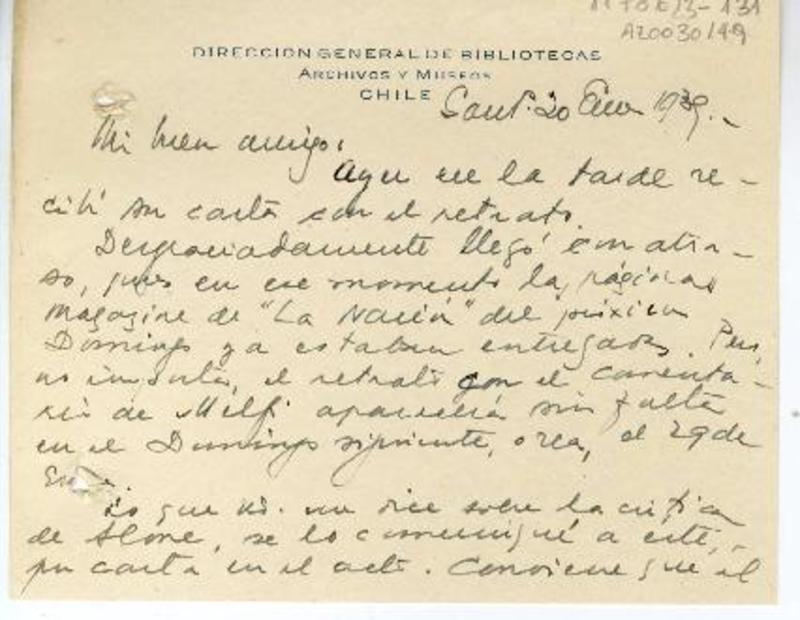 AZ0030149
DIRECCION GENERAL DE BIBLIOTECAS
ARCHIVOS Y MUSEOS
CHILE
Sant. 20 Enero 1939.-
Mi buen amigo:
Ayer en la tarde re-
cibí su carta con el retrato.
Desgraciadamente llegó con atra-
so, pues en ese momento las páginas
magazine de "La Nación" del próximo
Domingo ya estaban entregadas. Pero
no importa, el retrato con el comenta-
rio de Melfi aparecerá sin falta
en el Domingo siguiente, o sea, el 29 de
Enero.
Lo que Ud. me dice sobre la crítica
de Alone, se lo comuniqué a éste,
por carta en el acto. Conviene que el